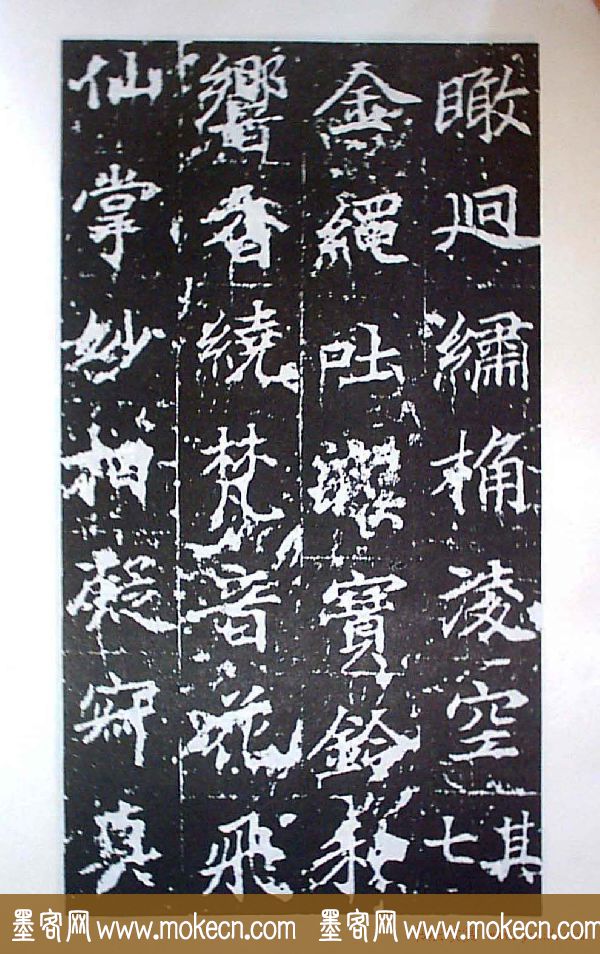 瞰迥繡桷淩空其七
金繩吐寶鈴
響香繞梵音花飛
仙掌妙相凝寂真
墨客网 www.mokecn.com 墨客网 www.mokecn.com